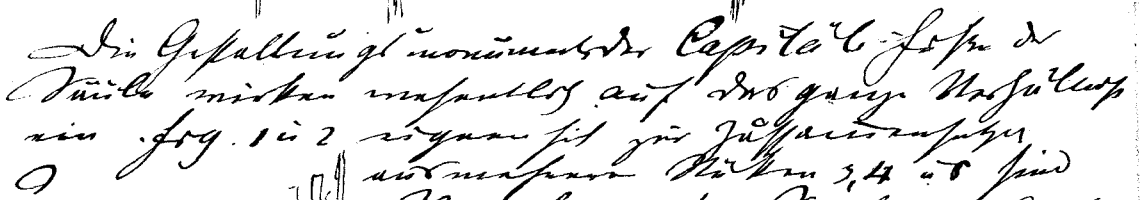 Die Gestaltungsmomente der Capitäl-Höhe der
Säule wirken wesentlich auf das ganze Verhältniß
ein. Fig. 1 u 2 eignen sich zur Zusammensetzung
aus mehreren Stücken 3, 4 u 5 sind